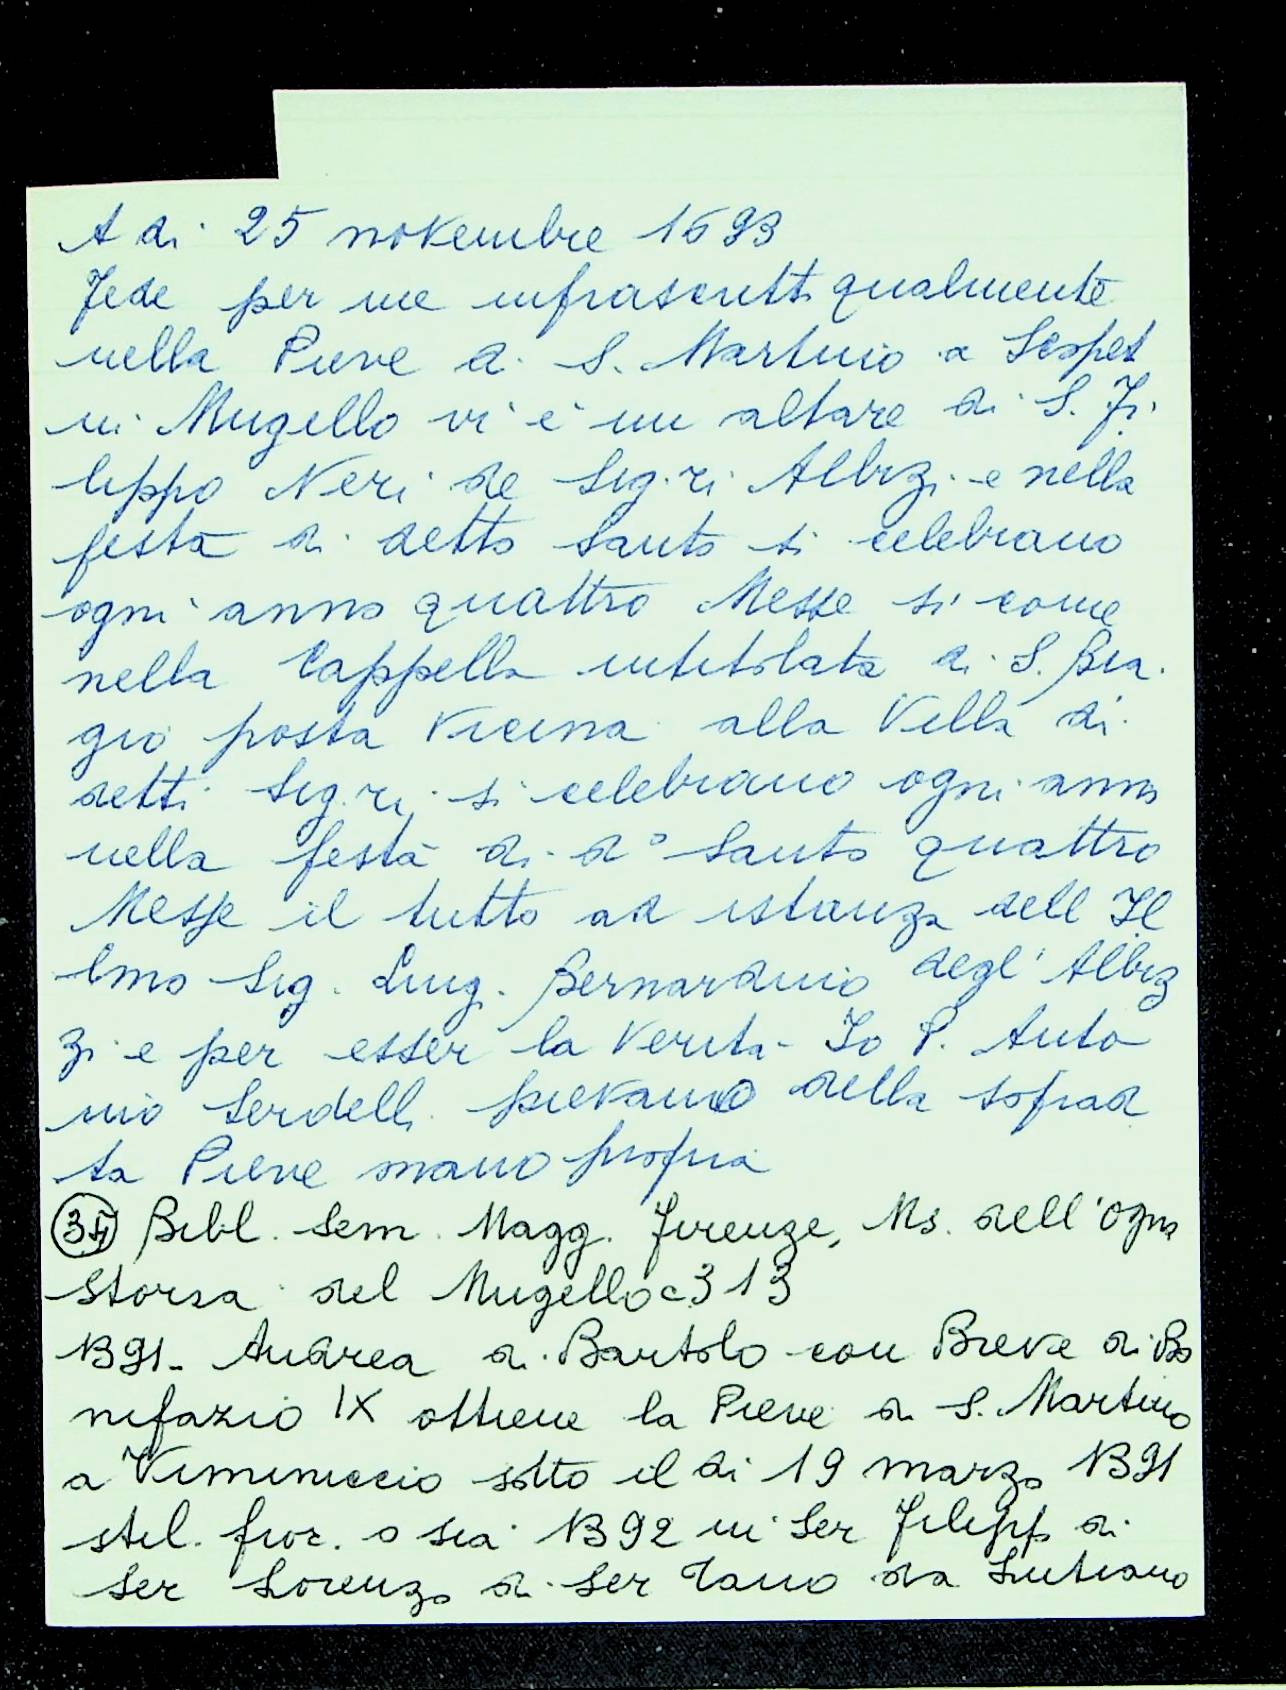 A di 25 novembre 1693
Fede per me infrascritto qualmente
nella Pieve di S. Martino a Scopet
in Mugello vi è un altare di S. Fi
lippo Neri de Sig.ri Albizi e nella
festa di detto Santo si celebrano
ogni anno quattro Messe si come
nella Cappella intitolata di S. Bia
gio posta vicina alla Villa di
detti Sig.ri si celebrano ogni anno
nella festa di d° Santo quattro
Messe il tutto ad istanza dell Il
lmo Sig. Luig. Bernardino degl' Albiz
zi e per esser la verità Io P. Anto
nio Serdelli pievano della soprad
ta Pieve mano propria
Bibl. Sem. Magg. Firenze, Ms. dell'Ogna
Storia del Mugello c 313
1391- Andrea di Bartolo con Breve di Bo
nifazio IX ottiene la Pieve di S. Martino
a Viminiccio sotto il di 19 marzo 1391
stil. fior. o sia 1392 in Ser Filippo di
Ser Lorenzo di Ser Tano da Lutiano